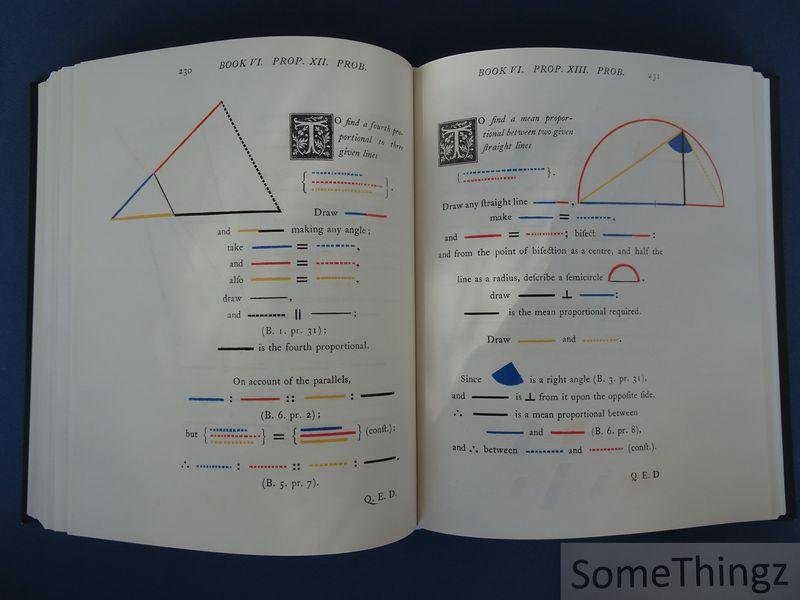 230
BOOK VI. PROP. XII. PROB.
TO find a fourth pro-
portional to three
given lines
{ }.
Draw
and making any angle;
take = ,
and = ,
alſo = ,
draw ,
and || ;
(B. 1. pr. 31);
is the fourth proportional.
On account of the parallels,
: :: :
(B. 6. pr. 2);
but { } = { } (conſt.);
∴ : :: : .
(B. 5. pr. 7).
Q. E. D.
BOOK VI. PROP. XIII. PROB.
231
TO find a mean propor-
tional between two given
ſtraight lines
{ }.
Draw any ſtraight line ,
make = ,
and = ; biſect ;
and from the point of biſection as a centre, and half the
line as a radius, deſcribe a ſemicircle ,
draw ⊥ :
is the mean proportional required.
Draw and .
Since is a right angle (B. 3. pr. 31),
and is ⊥ from it upon the oppoſite ſide,
∴ is a mean proportional between
and (B. 6. pr. 8),
and ∴ between and (conſt.).
Q. E. D
SomeThingz